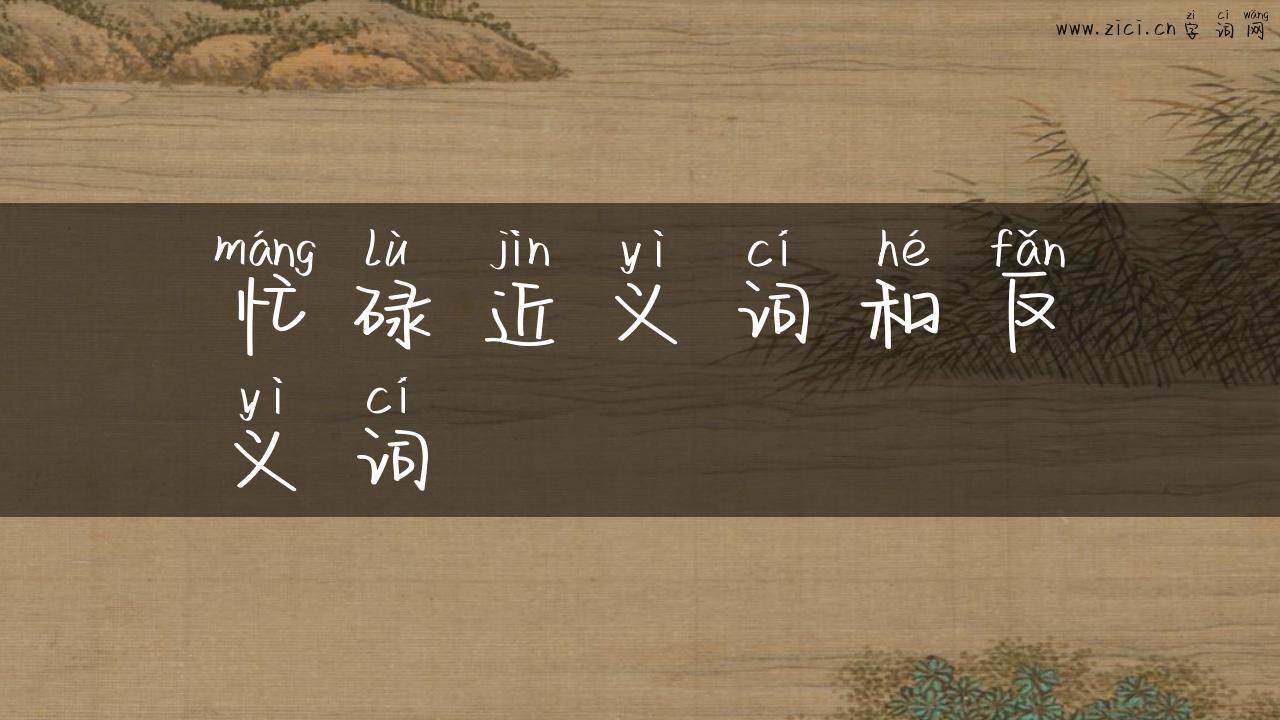 zì cí wǎng
www.zici.cn 字词网
máng lù jìn yì cí hé fǎn
忙碌近义词和反
yì cí
义词